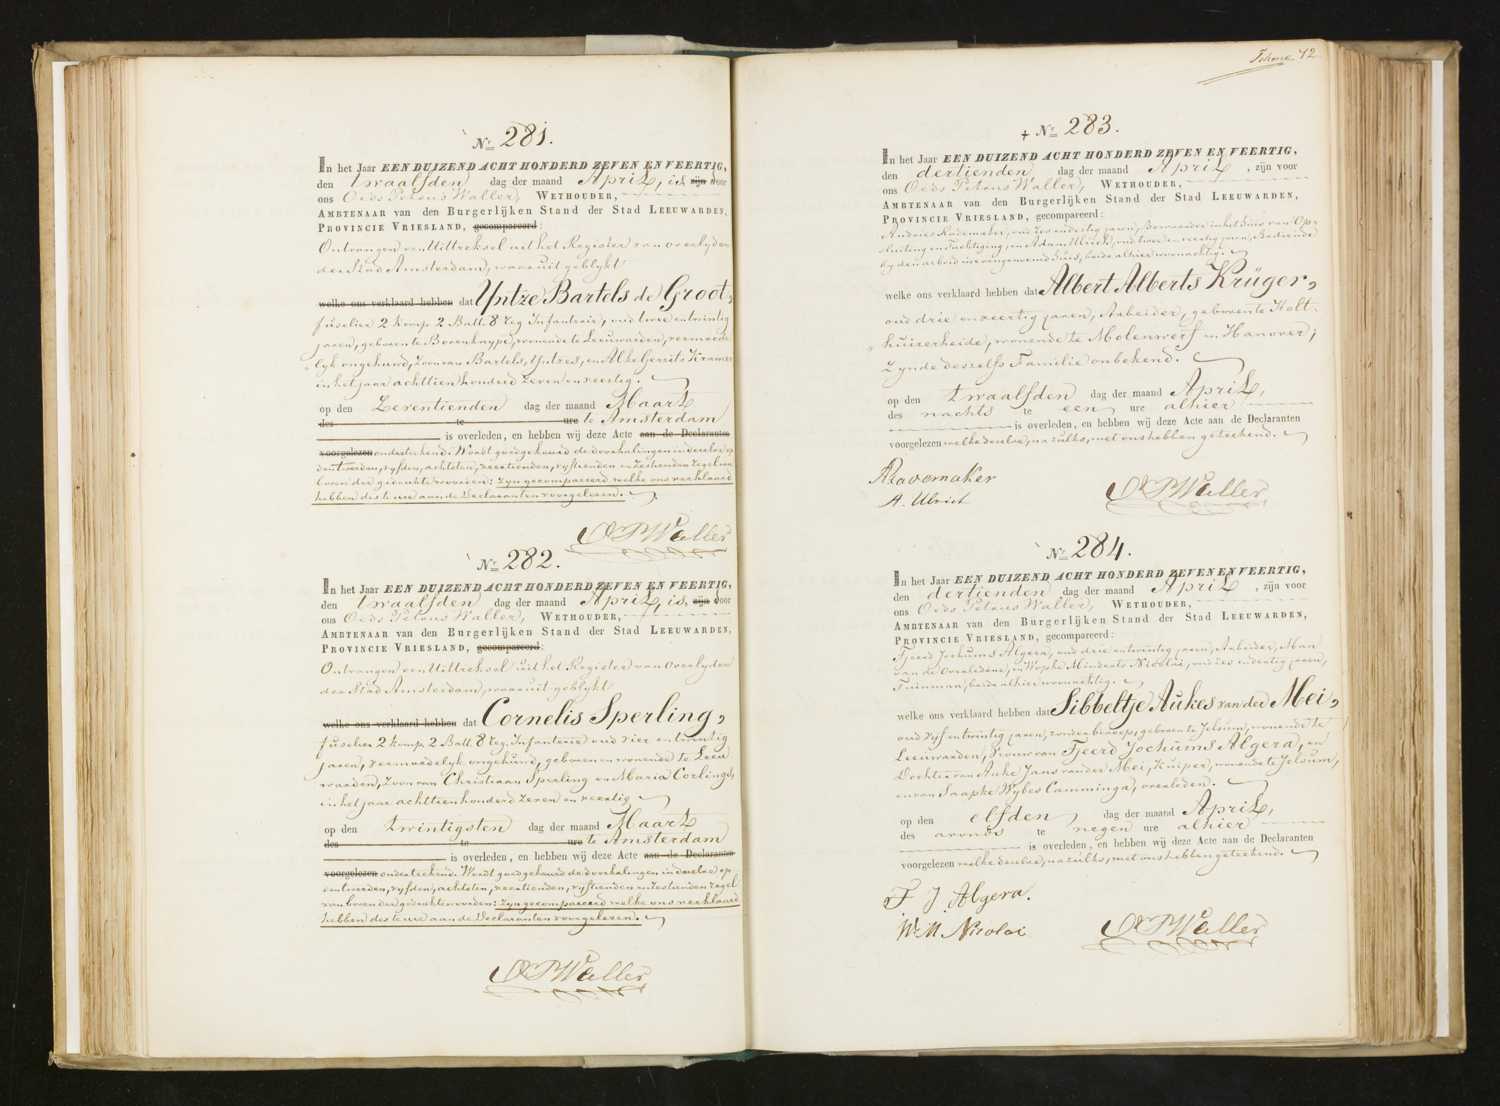 72
Nr. 281.
In het Jaar EEN DUIZEND ACHT HONDERD ZEVEN EN VEERTIG,
den twaalfden dag der maand April, is, zijn voor
ons Oeds Petrus Waller, WETHOUDER,
AMBTENAAR van den Burgerlijken Stand der Stad LEEUWARDEN,
PROVINCIE VRIESLAND, gecompareerd:
Ontvangen een Uittreksel uit het Register van overlyden
der Stad Amsterdam, waaruit geblykt
welke ons verklaard hebben dat Yntze Bartels de Groot,
fuselier 2 komp. 2 Batt. 8 Reg. Infanterie, oud twee en twintig
jaren, geboren te Bovenknype, wonende te Leeuwarden, vermoede-
lyk ongehuwd, Zoon van Bartels Yntzes, en Alke Gerrits Kramer
in het jaar achttien honderd zeven en veertig.
op den Zeventienden dag der maand Maart
des te ure te Amsterdam
is overleden, en hebben wij deze Acte aan de Declaranten
voorgelezen onderteekend. Wordt goedgekeurd de doorhalingen in de
den tweeden, vyfden, achtsten, veertienden, vyftienden en zestienden regel van
boven der gedrukte woorden: zyn gecompareerd welke ons verklaard
hebben des te ure aan de Declaranten voorgelezen.
OPWaller
Nr. 282.
In het Jaar EEN DUIZEND ACHT HONDERD ZEVEN EN VEERTIG,
den twaalfden dag der maand April, is, zijn voor
ons Oeds Petrus Waller, WETHOUDER,
AMBTENAAR van den Burgerlijken Stand der Stad LEEUWARDEN,
PROVINCIE VRIESLAND, gecompareerd:
Ontvangen een Uittreksel uit het Register van Overlyden
der Stad Amsterdam, waaruit geblykt
welke ons verklaard hebben dat Cornelis Sperling,
fuselier 2 komp. 2 Batt. 8 Reg. Infanterie oud vier en twintig
jaren, vermoedelyk ongehuwd, geboren en wonende te Leeu-
waarden, Zoon van Christiaan Sperling en Maria Corlings,
in het jaar achttienhonderd zeven en veertig
op den twintigsten dag der maand Maart
des te ure te Amsterdam
is overleden, en hebben wij deze Acte aan de Declaranten
voorgelezen onderteekend. Wordt goedgekeurd de doorhalingen in de
tweeden, vyfden, achtsten, veertienden, vyftienden en zestienden regel
van boven der gedrukte woorden: zyn gecompareerd welke ons verklaard
hebben des te ure aan de Declaranten voorgelezen.
OPWaller
+ Nr. 283.
In het Jaar EEN DUIZEND ACHT HONDERD ZEVEN EN VEERTIG,
den dertienden dag der maand April, zijn voor
ons Oeds Petrus Waller, WETHOUDER,
AMBTENAAR van den Burgerlijken Stand der Stad LEEUWARDEN,
PROVINCIE VRIESLAND, gecompareerd:
Andries Rademaker, oud zes en dertig jaren, Bewaarder in het Huis van Op-
sluiting en Tuchtiging, en Adam Ulrich, oud twee en veertig jaren, Bediende
by den arbeid in evengenoemd Huis, beide alhier woonachtig.
welke ons verklaard hebben dat Albert Alberts Krüger,
oud drie en veertig jaren, Arbeider, geboren te Holt-
huizerheide, wonende te Molenwerf in Hanover,
zynde deszelfs Familie onbekend.
op den twaalfden dag der maand April,
des nachts te een ure alhier
is overleden, en hebben wij deze Acte aan de Declaranten
voorgelezen welke dezelve, na zulks, met ons hebben geteekend.
A. Ulrich
OPWaller
Nr. 284.
In het Jaar EEN DUIZEND ACHT HONDERD ZEVEN EN VEERTIG,
den dertienden dag der maand April, zijn voor
ons Oeds Petrus Waller, WETHOUDER,
AMBTENAAR van den Burgerlijken Stand der Stad LEEUWARDEN,
PROVINCIE VRIESLAND, gecompareerd:
Tjeerd Jochums Algera, oud drie en twintig jaren, Arbeider, Man
van de Overledene, en Wopke Minderts Nicolai, oud zes en dertig jaren,
Tuinman, beide alhier woonachtig.
welke ons verklaard hebben dat Sibbeltje Aukes van der Mei,
oud vyf en twintig jaren, zonder beroep, geboren te Jelsum, wonende te
Leeuwarden, Vrouw van Tjeerd Jochums Algera, en
Dochter van Auke Jans van der Mei, Kuiper, wonende te Jelsum,
en van Saapke Wybes Camminga, overleden.
op den elfden dag der maand April,
des avonds te negen ure alhier
is overleden, en hebben wij deze Acte aan de Declaranten
voorgelezen welke dezelve, na zulks, met ons hebben geteekend.
T. J. Algera.
W. M. Nicolai
OPWaller